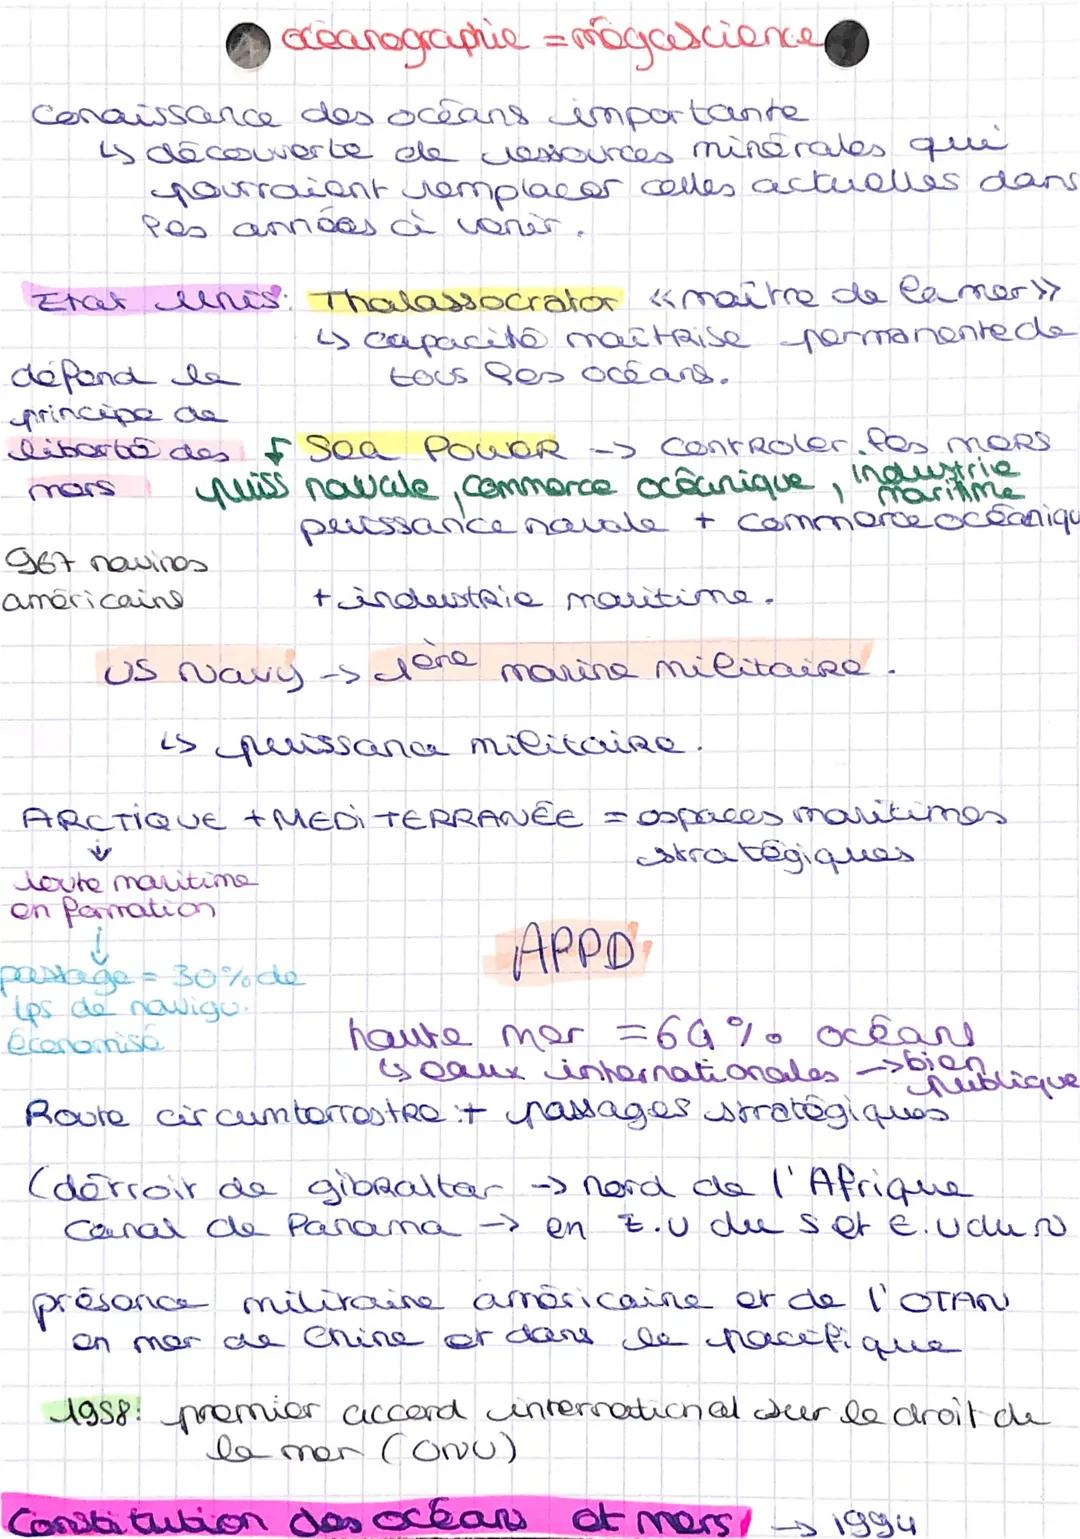 océanographie = mégascience
conaissance des océans importante
↳ découverte de ressources minérales qui
pourraient remplacer celles actuelles dans
les années à venir.
Etat Unis: Thalassocrator «maître de la mer»
↳ capacité maîtrise permanente de
tous les océans.
défend le
principe de
liberté des
mers
Sea Power -> controler les mers
puiss navale, commerce océanique, industrie
maritime
puissance navale + commerce océaniqu
+ industrie maritime.
967 navires
américains
US Navy -> 1ère marine militaire.
↳ puissance militaire.
ARCTIQUE + MEDITERRANÉE = espaces maritimes
stratégiques
route maritime
en formation
passage = 30% de
tps de navigu.
économisé
APPD
haute mer = 64% océans
↳ eaux internationales -> bien
publique
Route circumterrestre: + passages stratégiques
(détroit de gibraltar -> nord de l'Afrique
Canal de Panama -> en E.U du S et E.U du N
présence militaire américaine et de l'OTAN
en mer de Chine et dans le pacifique
1958: premier accord international sur le droit de
la mer (ONU)
Constitution des océans et mers -> 1994